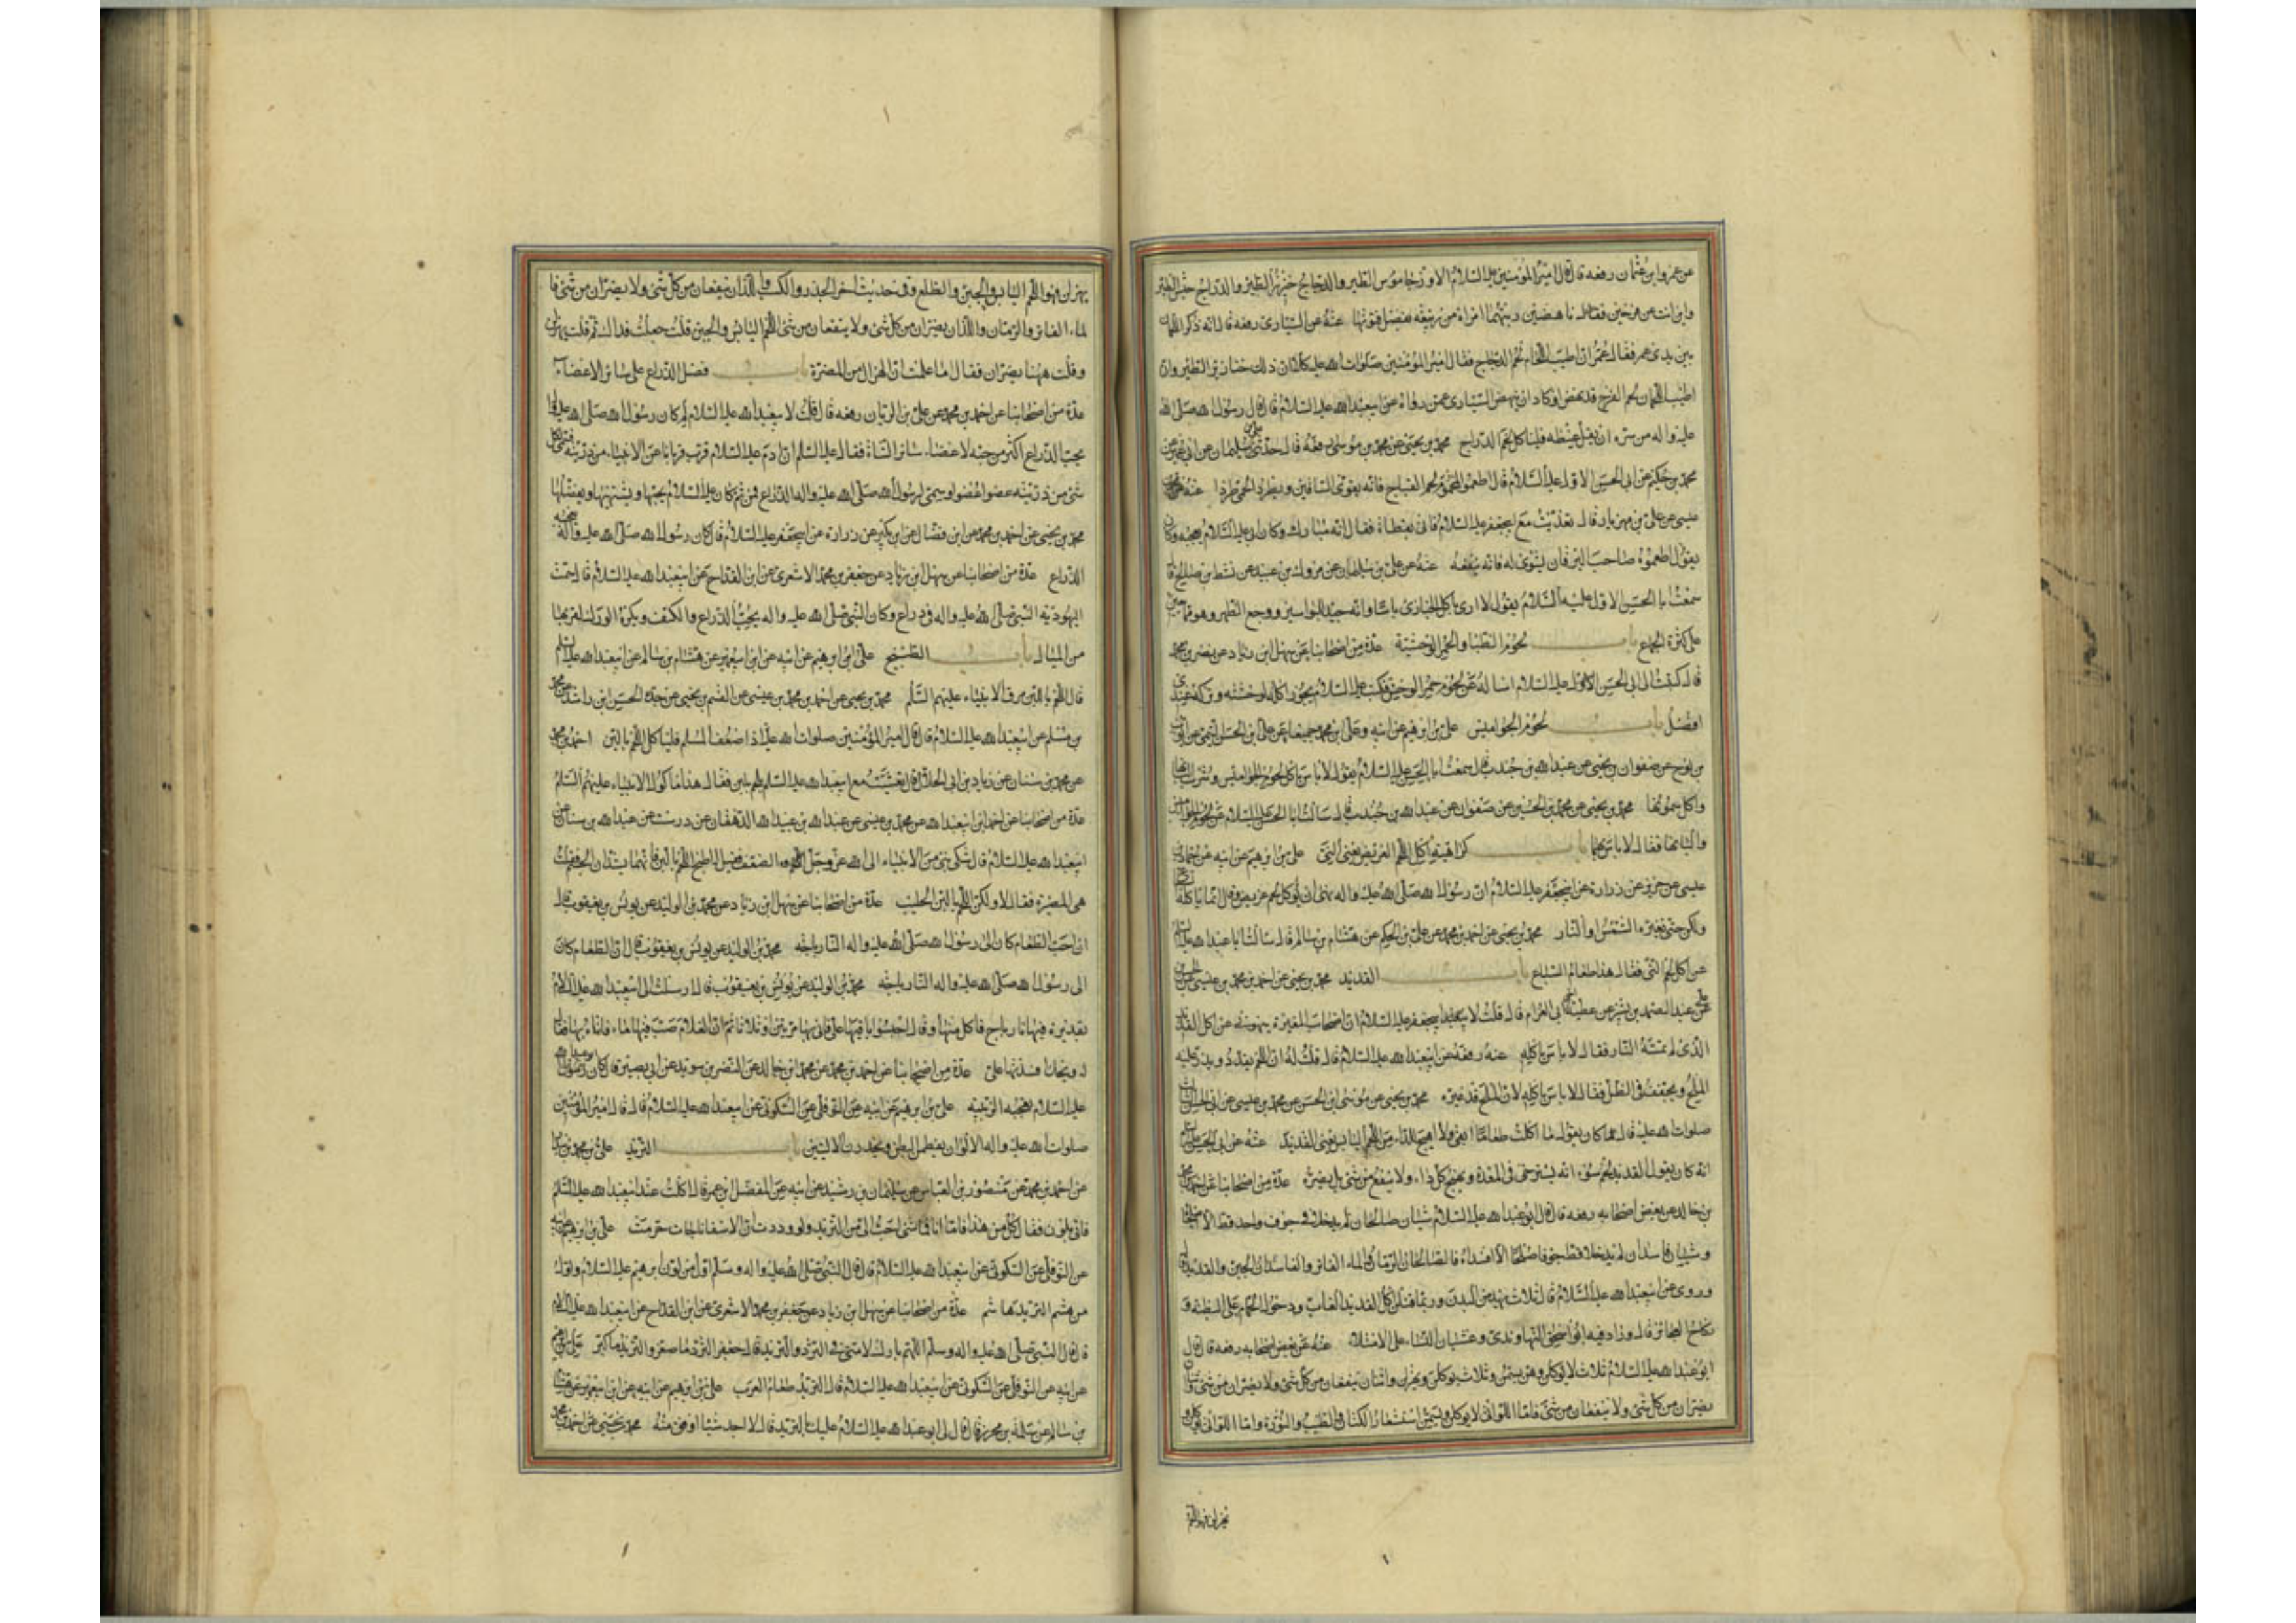 عن عمرو بن عثمان رفعه قال قال امير المؤمنين عليه السلام الاوز جاموس الطير والدجاج خنزير الطير والدراج حبش الطير
واين انت عن فرخين ناهضين ربتهما امراة من ربيعة بفضل قوتها عنه عن السياري رفعه قال انه ذكر اللحمان
بين يدي عمر فقال عمر ان اطيب اللحمان لحم الدجاج فقال امير المؤمنين صلوات الله عليه كلا ان ذلك خنازير الطير وان
اطيب اللحمان لحم الفرخ قد نهض او كاد ان ينهض السياري عمن رواه عن ابي عبدا لله عليه السلام قال قال رسول الله صلى الله
عليه واله من سره ان يقل غيظه فلياكل لحم الدراج محمد بن يحيى عن محمد بن موسى رفعه قال حدثني علي بن سليمان عن ابي عمير عن
محمد بن حكيم عن ابي الحسن الاول عليه السلام قال اطعموا المحموم لحم القباج فانه يقوي الساقين ويطرد الحمى طردا عنه عن محمد
عيسى عن علي بن مهزيار قال تغذيت مع ابي جعفر عليه السلام فاتي بقطاة فقال انه مبارك وكان ابي عليه السلام يعجبه وكان
يقول اطعموه صاحب اليرقان يشوى له فانه ينفعه عنه عن علي بن سليمان عن مروك بن عبيد عن نشيط بن صالح قا
سمعت ابا الحسن الاول عليه السلام يقول لا ارى باكل الحبارى باسا وانه جيد للبواسير ووجع الظهر وهو مما يعين
على كثرة الجماع باب لحوم الظبا والحمر الوحشية عدة من اصحابنا عن سهل ابن زياد عن نصر بن محمد
قال كتبت الى ابي الحسن الاول عليه السلام اساله عن لحوم حمر الوحش فكتب عليه السلام يجوز اكله لوحشته وتركه عندي
افضل باب لحوم الجواميس علي بن ابرهيم عن ابيه وعلي بن محمد جميعا عن علي بن الحسن التيمي عن ايوب
بن نوح عن صفوان بن يحيى عن عبدا لله بن جندب قال سمعت ابا الحسن عليه السلام يقول لا باس باكل لحوم الجواميس وشرب البانها
واكل سمونها محمد بن يحيى عن محمد بن الحسين عن صفوان عن عبدا لله بن جندب قال سالت ابا الحسن عليه السلام عن لحوم الجواميس
والبانها فقال لا باس بهما باب كراهية اكل اللحم الغريض يعني النيئ علي بن ابرهيم عن ابيه عن حماد بن
عيسى عن حريز عن زرارة عن ابي جعفر عليه السلام ان رسول الله صلى الله عليه واله نهى ان يؤكل لحم غريض وقال انما ياكله السباع
ولكن حتى تغيره الشمس او النار محمد بن يحيى عن احمد بن محمد عن علي بن الحكم عن هشام بن سالم قال سالت ابا عبدا لله عليه السلم
عن اكل لحم النئ فقال هذا طعام السباع باب القديد محمد بن يحيى عن احمد بن محمد بن عيسى عن الحسين
علي عن عبدالصمد بن بشير عن عطية اخي ابي العرام قال قلت لابي جعفر عليه السلام ان اصحاب المغيرة ينهوني عن اكل القديد
الذي لم تمسه النار فقال لا باس باكله عنه رفعه عن ابي عبدا لله عليه السلام قال قلت له ان اللحم يقدد ويذر عليه
الملح ويجفف في الظل فقال لا باس باكله لان الملح قد غيره محمد بن يحيى عن موسى ابن الحسن عن محمد بن عيسى عن ابي الحسن الثالث
صلوات الله عليه قال كان يقول ما اكلت طعاما ابقى ولا اهيج للداء من اللحم اليابس يعني القديد عنه عن ابي الحسن عليه السلم
انه كان يقول القديد لحم سوء انه يسترخي في المعدة ويهيج كل داء ولا ينفع من شي بل يضره عدة من اصحابنا عن احمد بن محمد
بن خالد عن بعض اصحابه رفعه قال قال ابو عبدا لله عليه السلام شيئان صالحان لم يدخلا في جوف واحد قط الا اصلحا
وشيئان فاسدان لم يدخلا قط جوفا صالحا الا افسداه فالصالحان الرمان والماء الفاتر والفاسدان الجبن والقديد
وروى عن ابي عبدا لله عليه السلام قال ثلاث يهدمن البدن وربما قتلن اكل القديد الغاب ودخول الحمام على البطنة و
نكاح العجائز قال وزاد فيه ابو اسحق النهاوندي وغشيان النساء على الامتلاء عنه عن بعض اصحابه رفعه قال قال
ابو عبدا لله عليه السلام ثلاث لا يؤكلن وهن يسمن وثلاث يؤكلن ويهزلن واثنان ينفعان من كل شي ولا يضران من شي واثنان
يضران من كل شي ولا ينفعان من شي فاما اللواتي لا يؤكلن ويسمن استشعار الكتان والطيب والنورة واما اللواتي يؤكلن و
يهزلن فهو اللحم
يهزلن فهو اللحم اليابس والجبن والطلع وفي حديث اخر الجوز والكسب واللذان ينفعان من كل شي ولا يضران من شي فا
لماء الفاتر والرمان واللذان يضران من كل شي ولا ينفعان من شي اللحم اليابس والجبن قلت جعلت فداك ثم قلت يهزلن
وقلت ههنا يضران فقال اما علمت ان الهزال من المضرة باب فضل الذراع على سائر الاعضاء
عدة من اصحابنا عن احمد بن محمد عن علي بن الريان رفعه قال قلت لابي عبدا لله عليه السلام لم كان رسول الله صلى الله عليه واله
يحب الذراع اكثر من حبه لاعضاء سائر الشاة فقال عليه السلم ان ادم عليه السلام قرب قربانا عن الانبياء من ذريته فسمى لكل
شي من ذريته عضوا عضوا وسمى لرسول الله صلى الله عليه واله الذراع فمن ثم كان عليه السلام يحبها ويشتهيها ويفضلها
محمد بن يحيى عن احمد بن محمد عن ابن فضال عن ابن بكير عن زرارة عن ابي جعفر عليه السلام قال كان رسول الله صلى الله عليه واله يعجبه
الذراع عدة من اصحابنا عن سهل ابن زياد عن جعفر بن محمد الاشعري عن ابن القداح عن ابي عبدا لله عليه السلام قال سمت
اليهودية النبي صلى الله عليه واله في ذراع وكان النبي صلى الله عليه واله يحب الذراع والكتف ويكره الورك لقربها
من المبال باب الطبيخ علي ابن ابرهيم عن ابيه عن ابن ابي عمير عن هشام بن سالم عن ابي عبدا لله عليه السلم
قال اللحم باللبن مرق الانبياء عليهم السلم محمد بن يحيى عن احمد بن محمد بن عيسى عن القسم بن يحيى عن جده الحسن ابن راشد عن محمد
بن مسلم عن ابي عبدا لله عليه السلام قال قال امير المؤمنين صلوات الله عليه اذا ضعف المسلم فلياكل اللحم باللبن احمد بن محمد
عن محمد بن سنان عن زياد بن ابي الحلال قال تعشيت مع ابي عبدا لله عليه السلم بلحم بلبن فقال هذا ماكول الانبياء عليهم السلم
عدة من اصحابنا عن احمد ابن ابي عبدا لله عن محمد بن عيسى عن عبدا لله بن عبيدا لله الدهقان عن درست عن عبدا لله بن سنان عن
ابي عبدا لله عليه السلام قال شكى نبي من الانبياء الى الله عز وجل الضعف فقيل له اطبخ اللحم باللبن فانهما يشدان الجسم قلت
هي المضيرة فقال لا ولكن اللحم باللبن الحليب عدة من اصحابنا عن سهل ابن زياد عن محمد بن الوليد عن يونس بن يعقوب قال
ان احب الطعام كان الى رسول الله صلى الله عليه واله النارباجه محمد بن الوليد عن يونس بن يعقوب قال ان الطعام كان
الى رسول الله صلى الله عليه واله النارباجه محمد بن الوليد عن يونس بن يعقوب قال ارسلت الى ابي عبدا لله عليه السلام
بقديرة فيها نارباج فاكل منها وقال احبسوا بقيتها علي فاتي بها مرتين او ثلاثا ثم ان الغلام صب فيها ماء فاتاه بها فقال
له ويحك افسدتها علي عدة من اصحابنا عن احمد بن محمد عن محمد ابن خالد عن النضر بن سويد عن ابي بصير قال كان ابو عبدا لله
عليه السلام يعجبه الزبيبة علي بن ابرهيم عن ابيه عن النوفلي عن السكوني عن ابي عبدا لله عليه السلام قال قال امير المؤمنين
صلوات الله عليه واله الالوان يعظمن البطن ويخدرن الاليتين باب الثريد علي بن محمد بن بندار
عن احمد بن محمد عن منصور بن العباس عن سليمان بن رشيد عن ابيه عن المفضل ابن عمر قال اكلت عند ابي عبدا لله عليه السلم
فاتي بلون فقال كل من هذا فاما انا فما شي احب الي من الثريد ولوددت ان الاسفاناجات حرمت علي بن ابرهيم عن ابيه
عن النوفلي عن السكوني عن ابي عبدا لله عليه السلام قال قال النبي صلى الله عليه واله وسلم اول من لون ابرهيم عليه السلام واول
من هشم الثريد هاشم عدة من اصحابنا عن سهل ابن زياد عن جعفر بن محمد الاشعري عن ابن القداح عن ابي عبدا لله عليه السلام
قال قال النبي صلى الله عليه واله وسلم اللهم بارك لامتي في الثرد والثريد قال جعفر الثرد ما صغر والثريد ما كبر علي بن ابرهيم
عن ابيه عن النوفلي عن السكوني عن ابي عبدا لله عليه السلام قال الثريد طعام العرب علي بن ابرهيم عن ابيه عن ابن ابي عمير عن هشام
بن سالم عن سلمة بن محرز قال قال لي ابو عبدا لله عليه السلام عليك بالثريد فاني لا اجد شيئا اوفق منه محمد بن يحيى عن احمد بن محمد